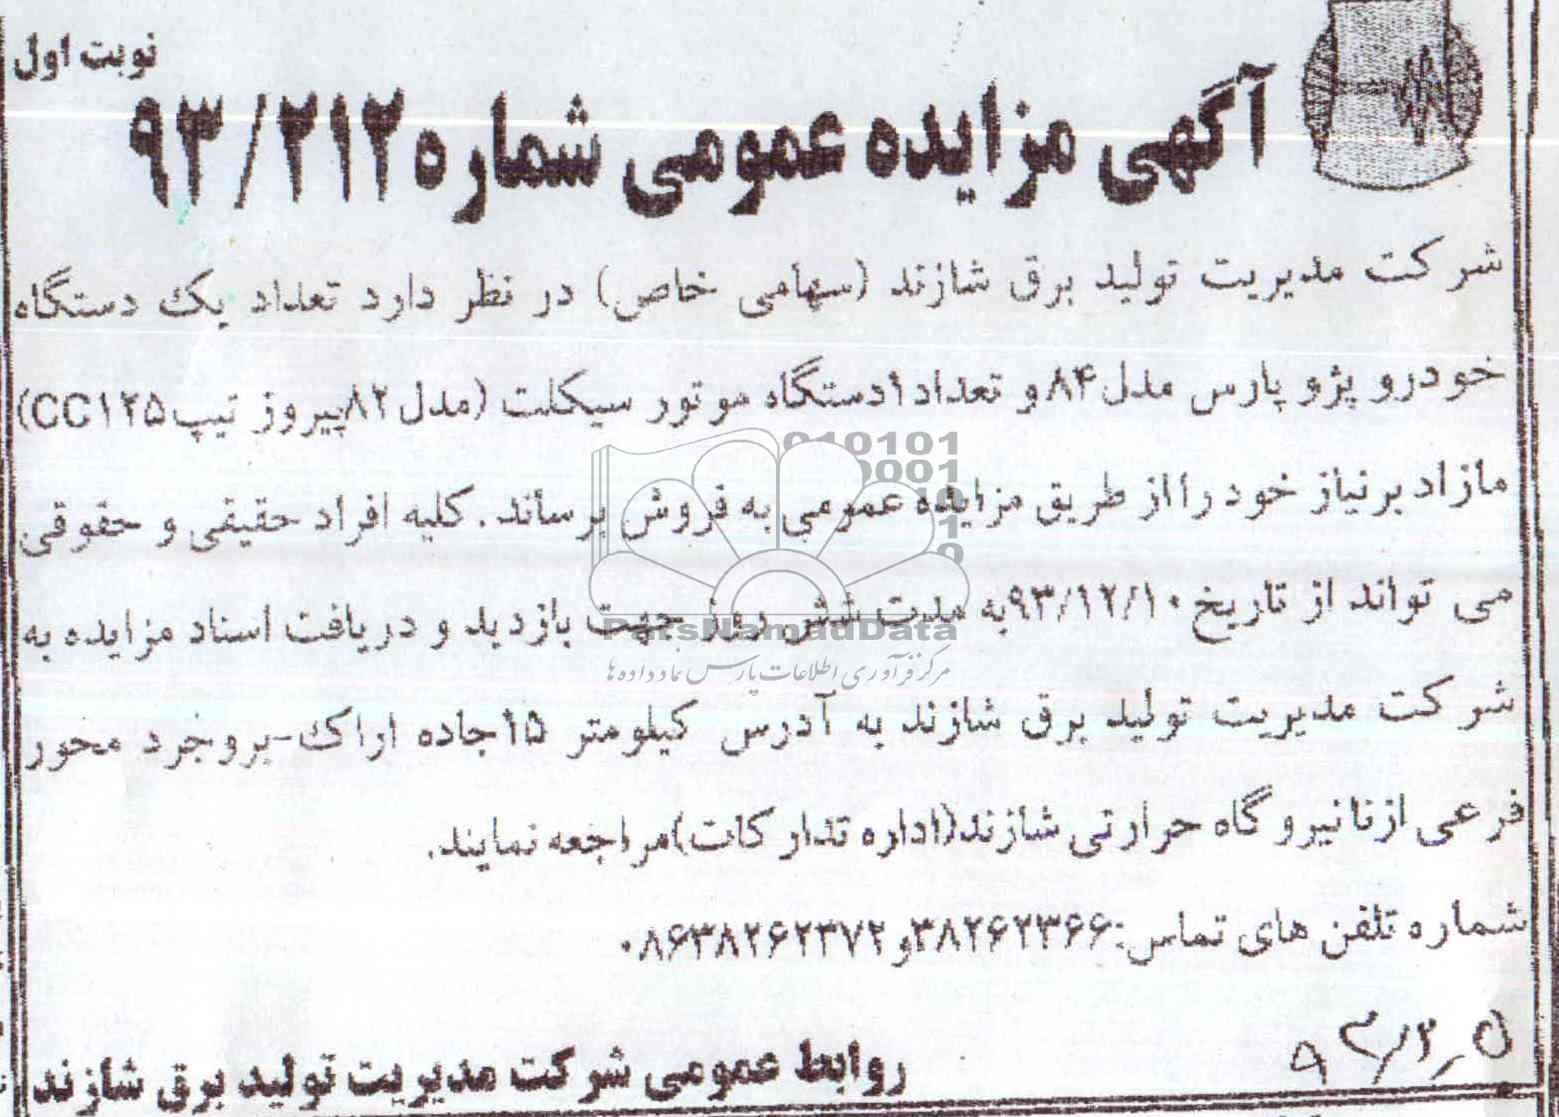 نوبت اول
آگهی مزایده عمومی شماره ۹۳/۲۱۲
شرکت مدیریت تولید برق شازند (سهامی خاص) در نظر دارد تعداد یک دستگاه
خودرو پژو پارس مدل ۸۴ و تعداد ۱ دستگاه موتور سیکلت (مدل ۸۲ پیروز تیپ CC۱۲۵)
مازاد بر نیاز خود را از طریق مزایده عمومی به فروش برساند. کلیه افراد حقیقی و حقوقی
می تواند از تاریخ ۹۳/۱۲/۱۰ به مدت شش روز جهت بازدید و دریافت اسناد مزایده به
شرکت مدیریت تولید برق شازند به آدرس کیلومتر ۱۵ جاده اراک-بروجرد محور
فرعی ازنا نیروگاه حرارتی شازند (اداره تدارکات) مراجعه نمایند.
شماره تلفن های تماس: ۳۸۲۶۲۳۶۶ و ۰۸۶۳۸۲۶۲۳۷۲
روابط عمومی شرکت مدیریت تولید برق شازند
010101
0001
10
1
0
ParsNamadData
مرکز فرآوری اطلاعات پارس نماد داده ها